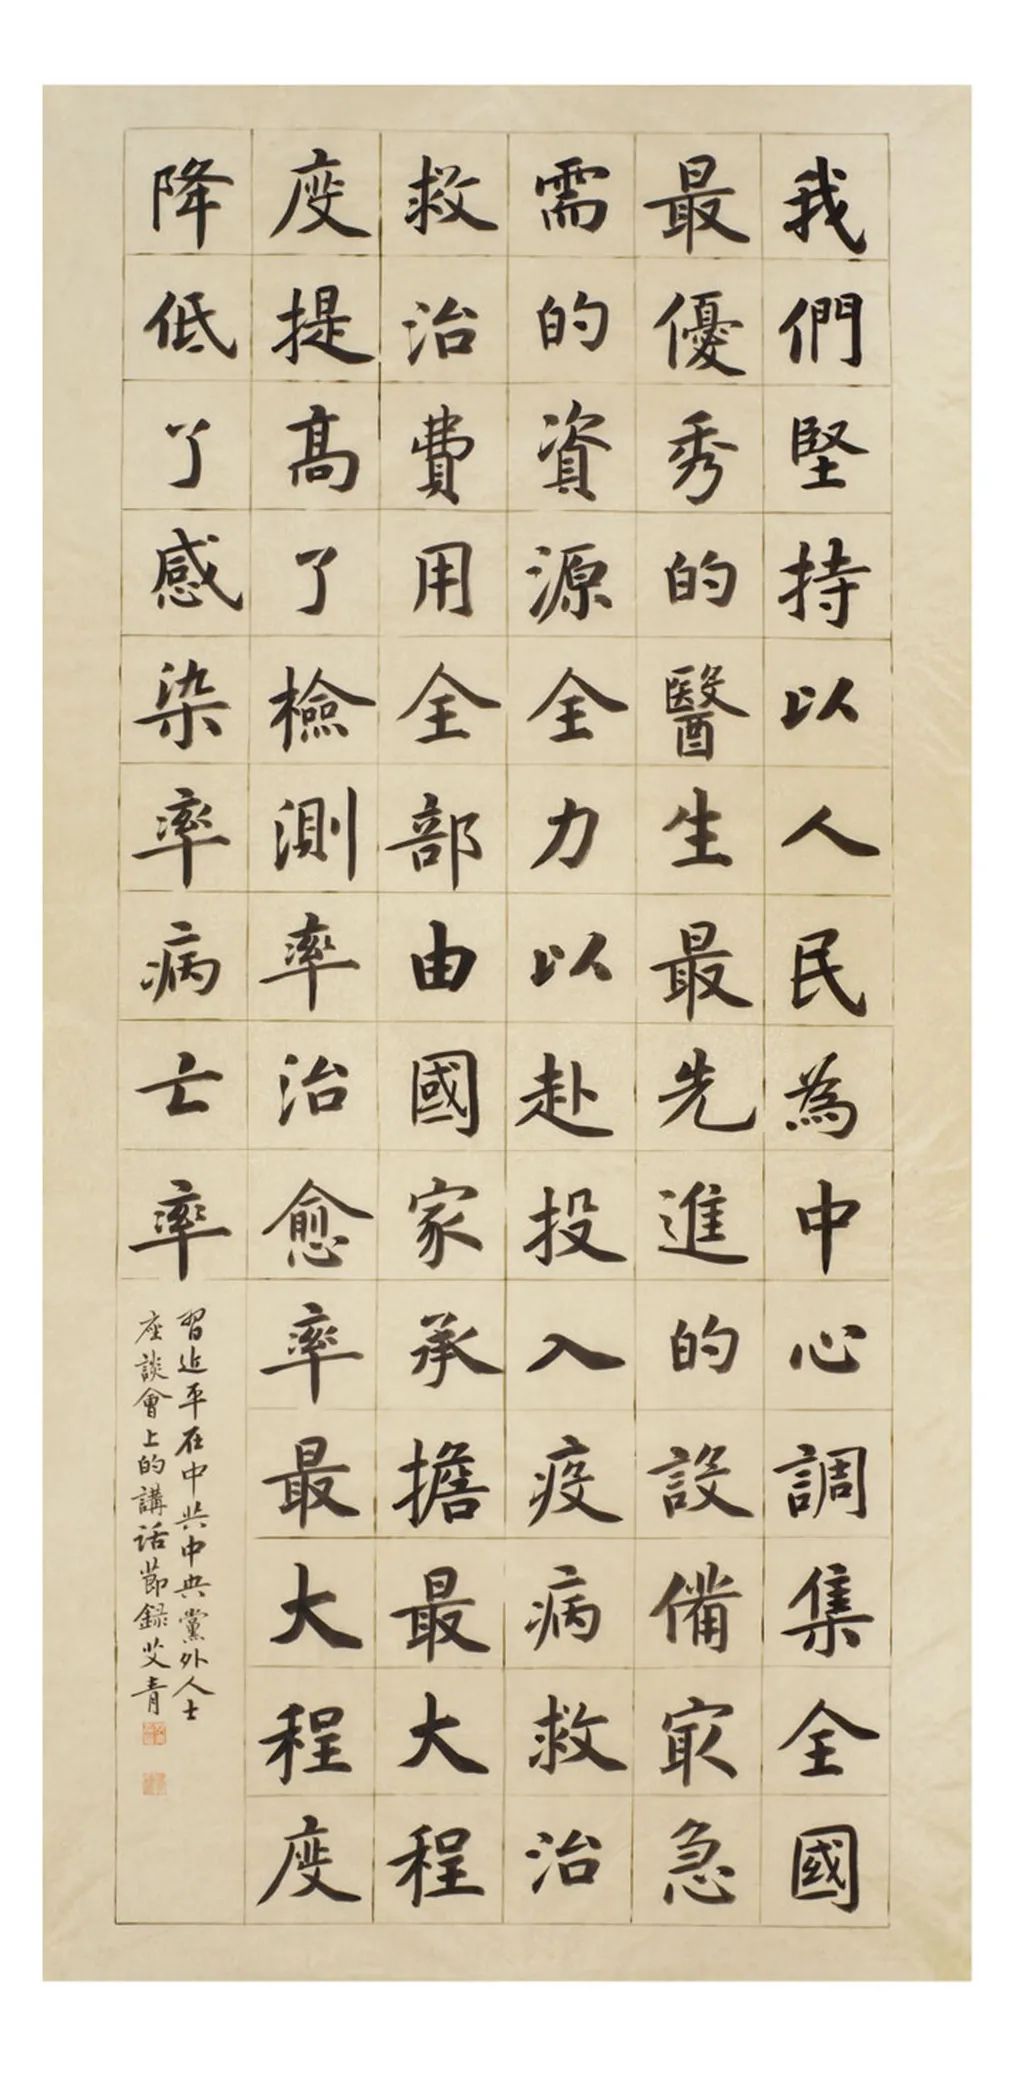 我們堅持以人民為中心調集全國
最優秀的醫生最先進的設備最急
需的資源全力以赴投入疫病救治
救治費用全部由國家承擔最大程
度提高了檢測率治愈率最大程度
降低了感染率病亡率
習近平在中共中央黨外人士
座談會上的講話節録艾青